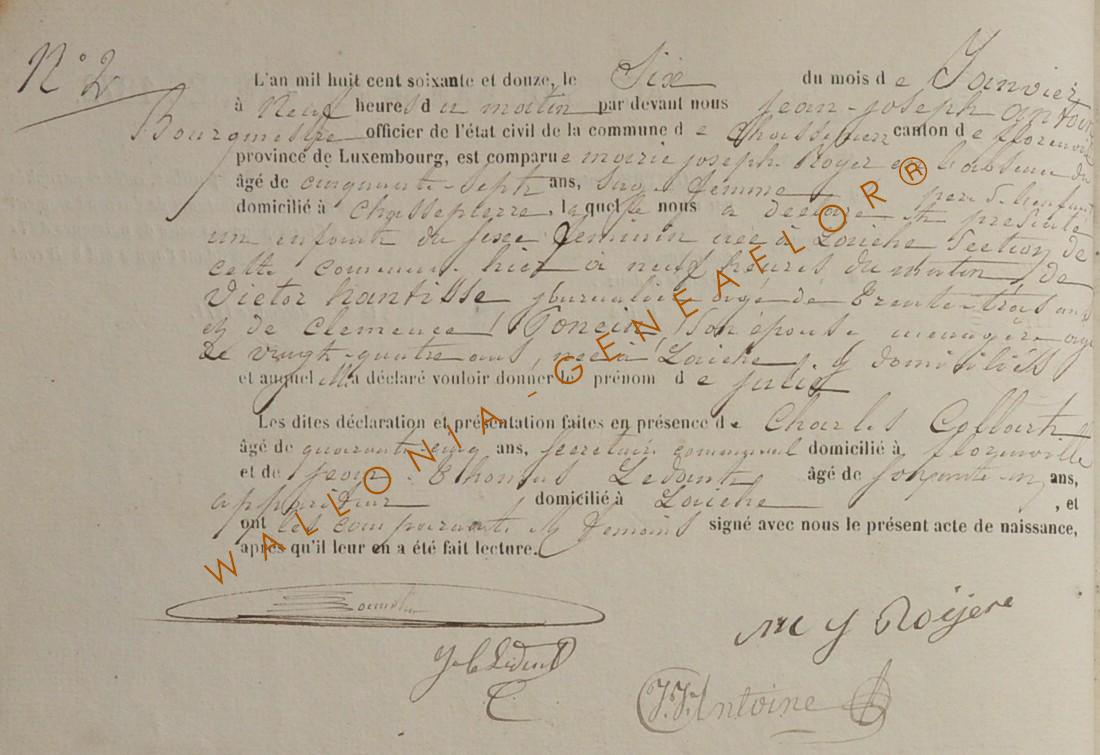 N° 2
L'an mil huit cent soixante et douze, le Six du mois de Janvier
à Neuf heures du matin par devant nous jean-joseph antoine
Bourgmestre officier de l'état civil de la commune de Chassepierre canton de florenville
province de Luxembourg, est comparue marie joseph Royer en l'absence du
âgé de cinquante-sept ans, sage femme père de l'enfant
domicilié à Chassepierre, laquelle nous a déclaré et présenté
un enfant du sexe feminin née à Laiche Section de
cette commune hier à neuf heures du matin, de
Victor hantisse journalier agé de trente-trois ans
et de Clemence Poncin son épouse menagère agée
de vingt-quatre ans, née à Laiche, y domiciliés
et auquel elle a déclaré vouloir donner le prénom de julie
Les dites déclaration et présentation faites en présence de Charles Collart
âgé de quarante-cinq ans, secretaire communal domicilié à florenville
et de jean Thomas Ledent âgé de soixante-un ans,
appariteur domicilié à Laiche, et
ont les comparante et temoins signé avec nous le présent acte de naissance,
après qu'il leur en a été fait lecture.
WALLONIA-GENEAFLOR®
M J Roijere
J. J. Antoine